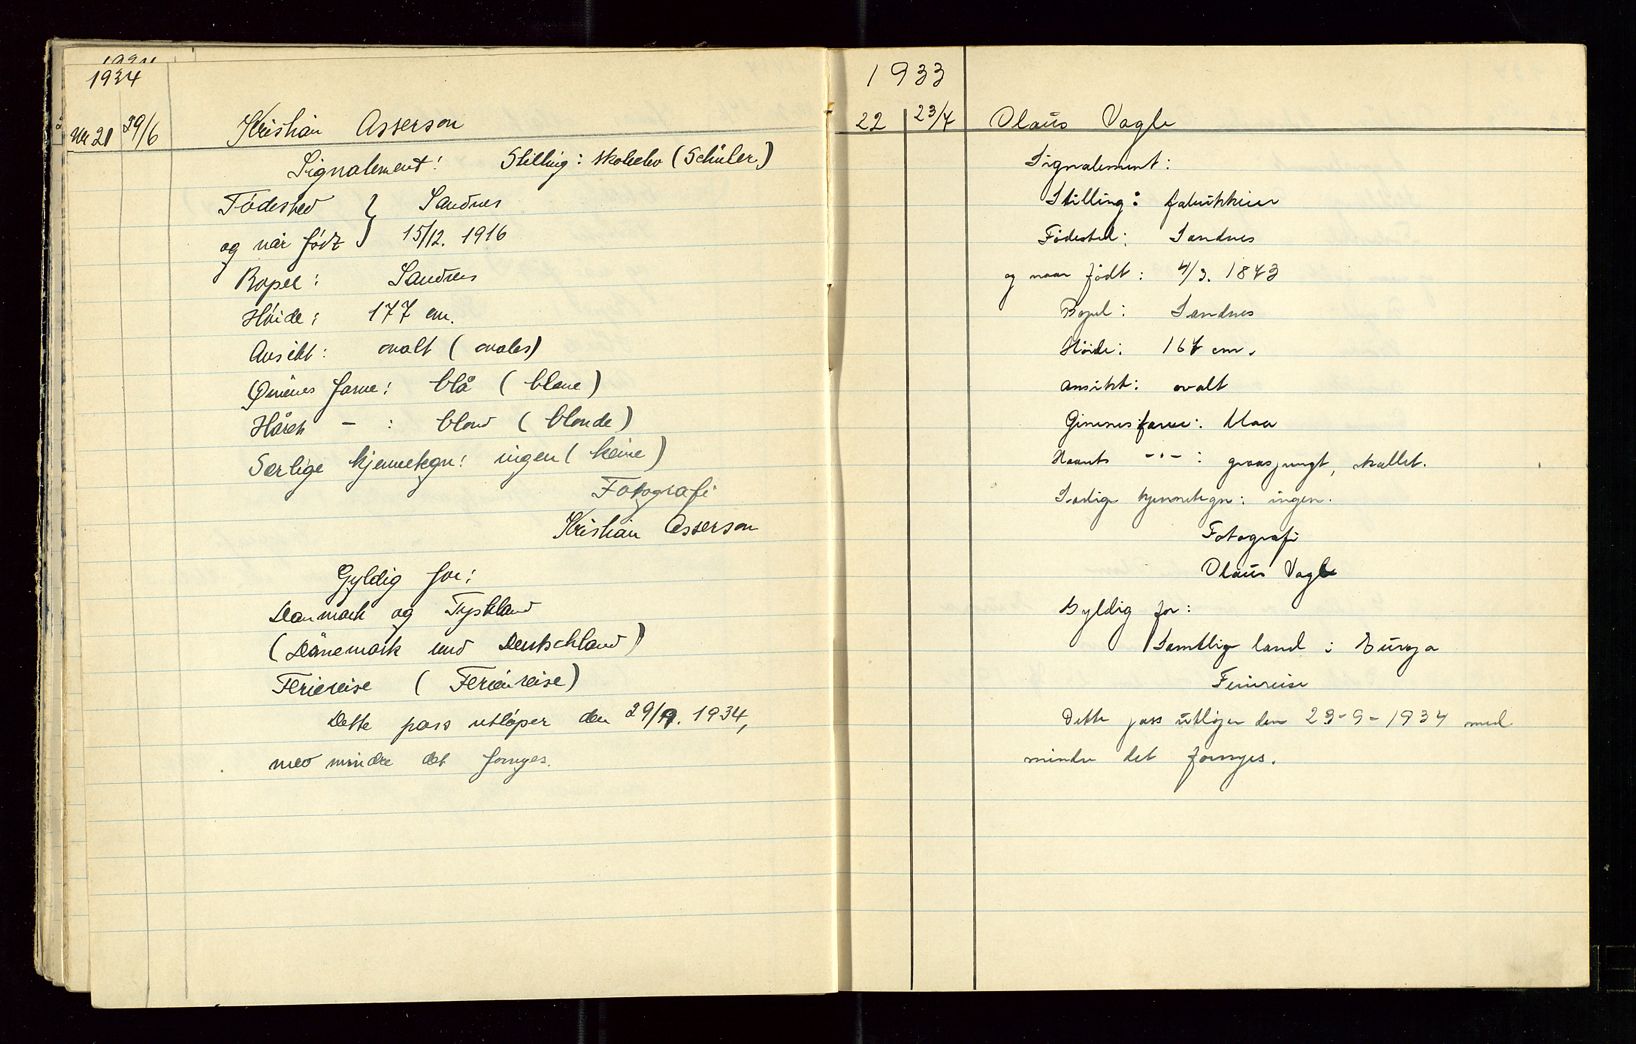 1934
Nr 21 29/6 Kristian Asserson
Signalement: Stilling: skoleelev (Schüler)
Fødested } Sandnes
og når født } 15/12. 1916
Bopel: Sandnes
Høide: 177 cm.
Ansikt: ovalt (ovales)
Øinenes farve: blå (blaue)
Hårets — : blond (blonde)
Særlige kjennetegn: ingen (keine)
Fotografi
Kristian Asserson
Gyldig for:
Danmark og Tyskland
(Dänemark und Deutschland)
Feriereise (Ferienreise)
Dette pass utløper den 29/9. 1934,
med mindre det fornyes.
1933
22 23/4 Olaus Vagle
Signalement:
Stilling: fabrikkeier
Fødested: Sandnes
og naar født: 4/3. 1873
Bopel: Sandnes
Høide: 167 cm.
Ansikt: ovalt
Øinenes farve: blaa
Haarets -"- : graasprengt, skallet.
Særlige kjennetegn: ingen.
Fotografi
Olaus Vagle
Gyldig for:
Samtlige land i Europa
Feriereise
Dette pass utløper den 23-9-1934 med
mindre det fornyes.